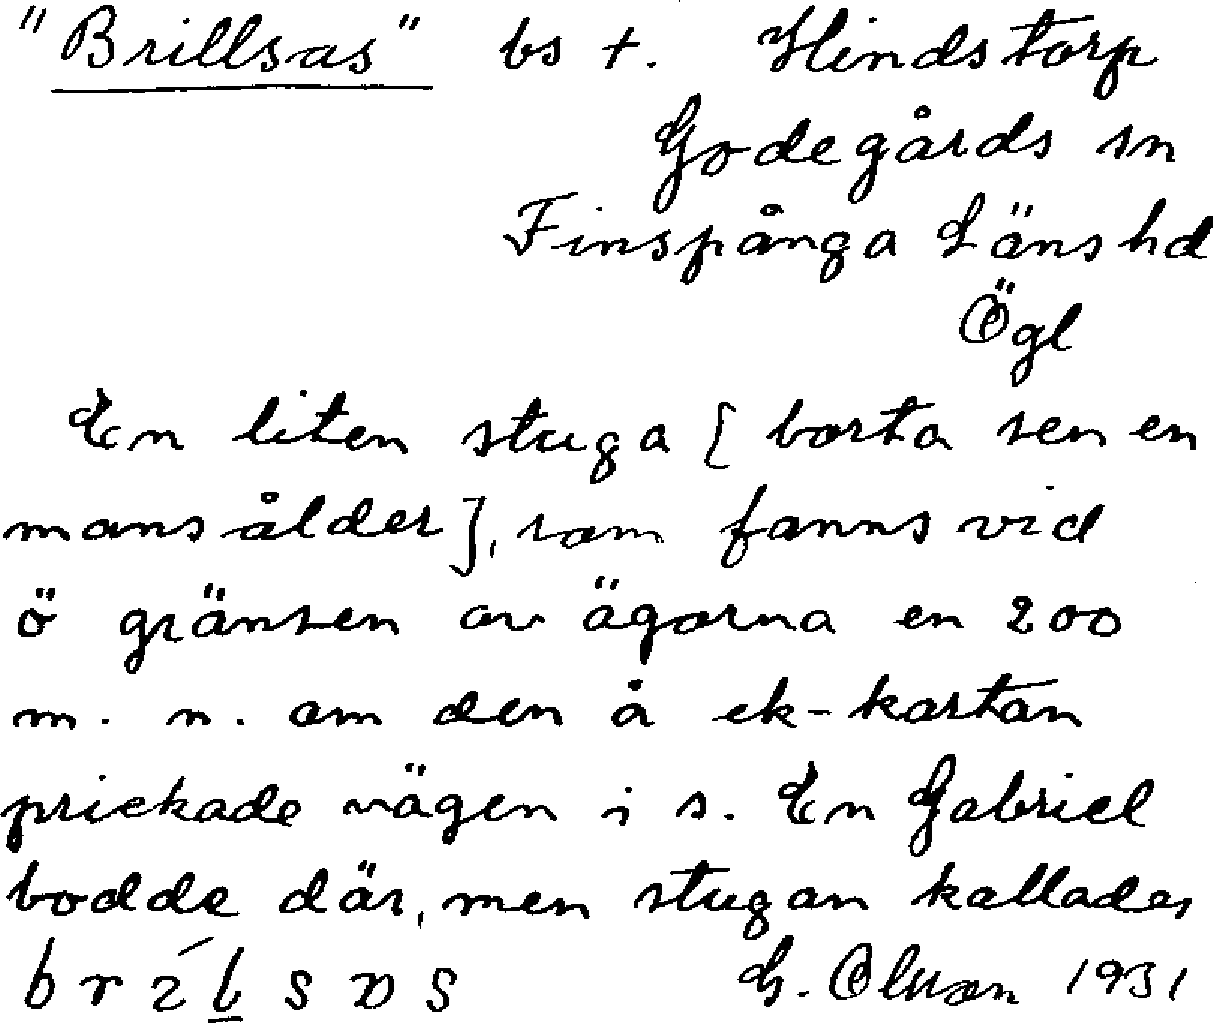 "Brillsas" bs t. Hindstorp
Godegårds sn
Finspånga Länshd
Ögl
En liten stuga [borta sen en
mansålder], som fanns vid
ö gränsen av ägorna en 200
m. n. om den å ek-kartan
prickade vägen i s. En Gabriel
bodde där, men stugan kallades
G. Olson 1931